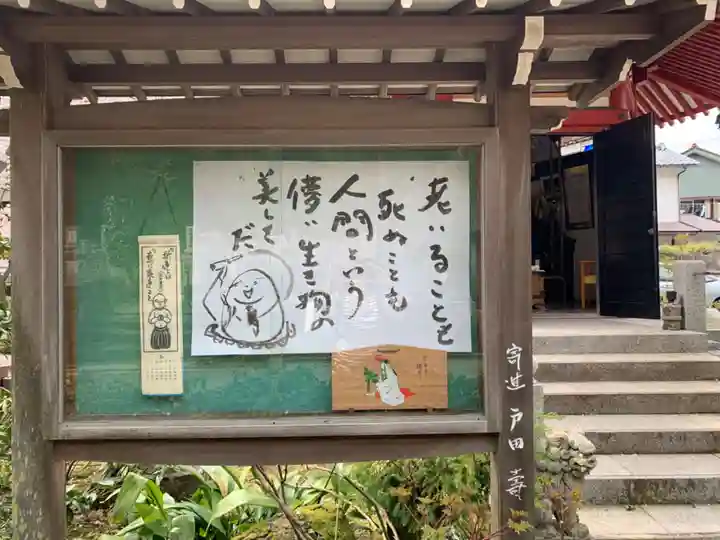 老いることも
死ぬことも
人間という
儚い生き物の
美しさ
だ
寄進 戸田 壽